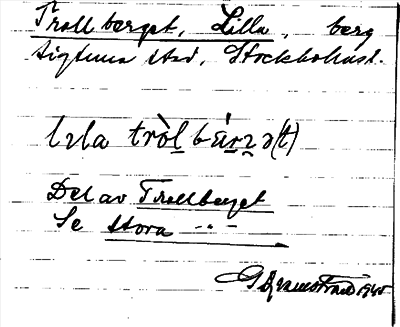 Trollberget, Lilla, berg
Sigtuna stad, Stockholmsl.
lɩla tròl bárʒ ə(t)
Del av Trollberget
Se Stora -"-
1945